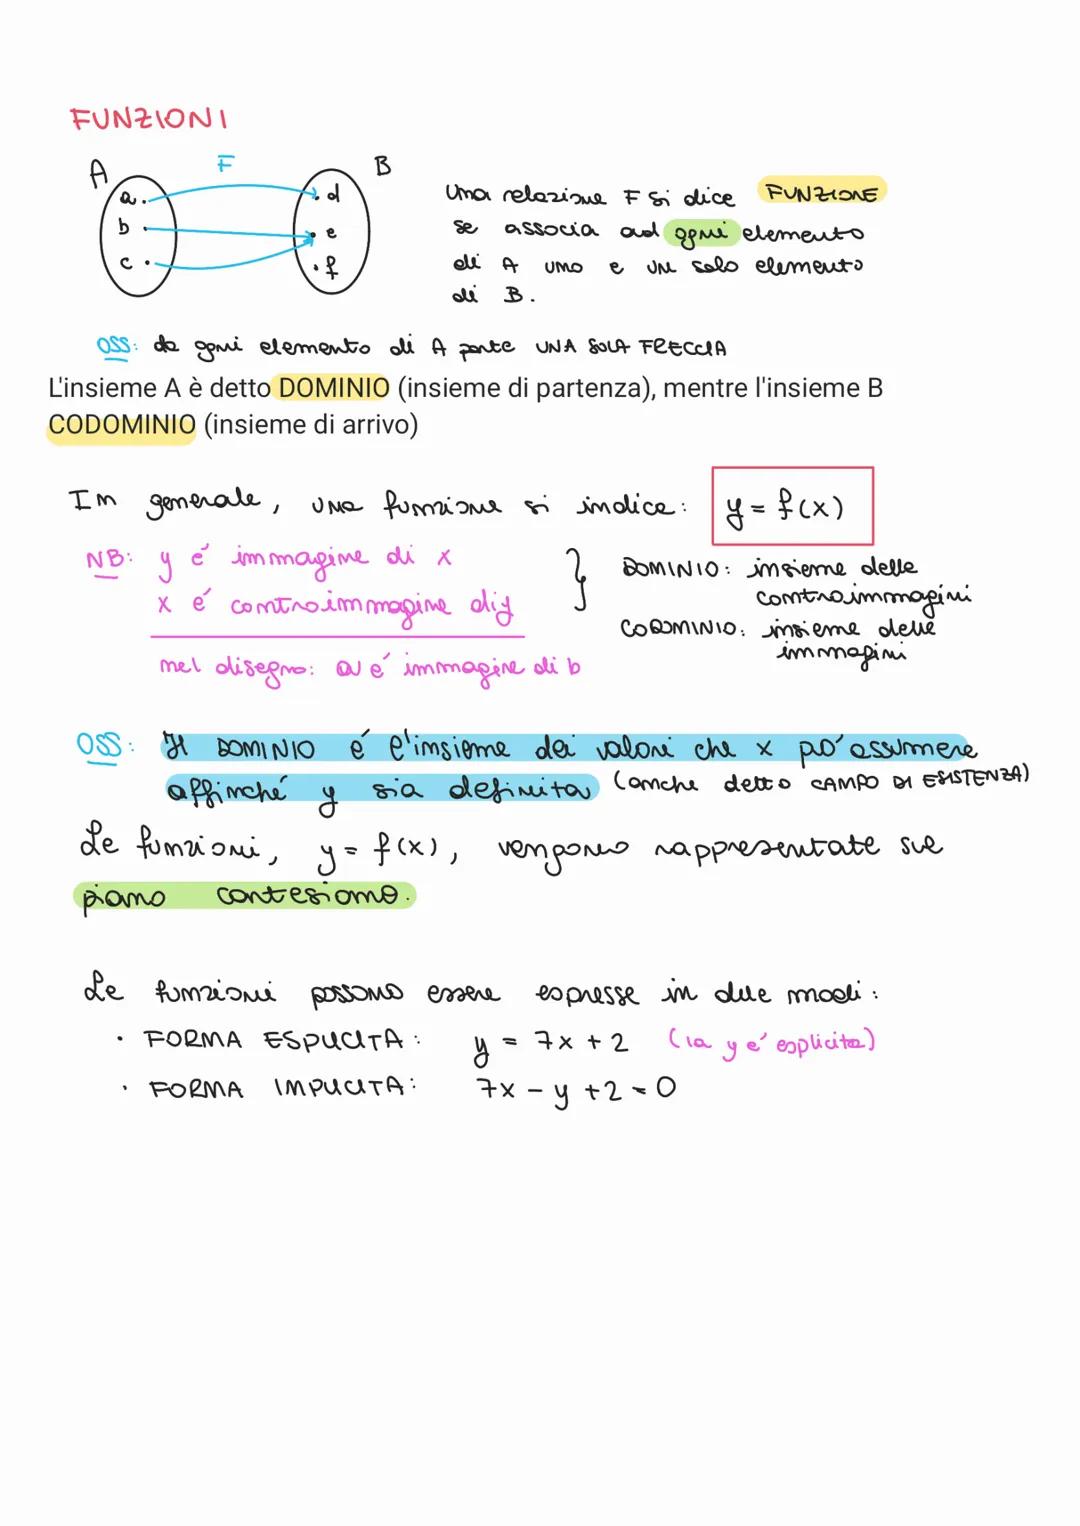 FUNZIONI
A F B
a. . d
b . . e
c . . f
Una relazione F si dice FUNZIONE
se associa ad ogni elemento
di A uno e un solo elemento
di B.
OSS: da ogni elemento di A parte UNA SOLA FRECCIA
L'insieme A è detto DOMINIO (insieme di partenza), mentre l'insieme B
CODOMINIO (insieme di arrivo)
In generale, una funzione si indica: y = f(x)
NB: y é immagine di x
x é controimmagine di y
nel disegno: a é immagine di b
} DOMINIO: insieme delle
controimmagini
CODOMINIO: insieme delle
immagini
OSS: Il DOMINIO é l'insieme dei valori che x po' assumere
affinché y sia definita (anche detto CAMPO DI ESISTENZA)
Le funzioni, y = f(x), vengono rappresentate sul
piano cartesiano.
Le funzioni possono essere espresse in due modi:
• FORMA ESPLICITA: y = 7x + 2 (la y é esplicita)
• FORMA IMPLICITA: 7x - y + 2 = 0